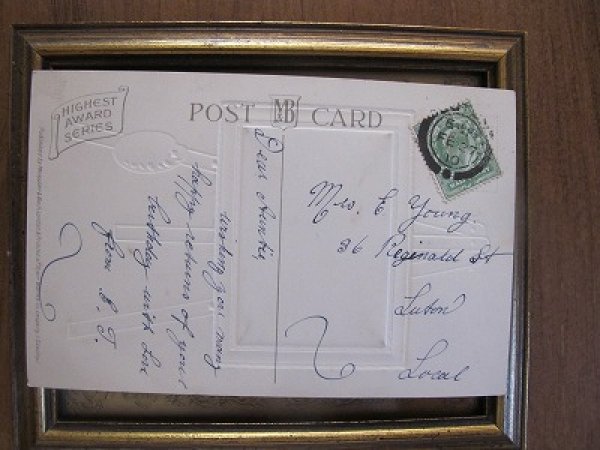 HIGHEST
AWARD
SERIES
POST MB CARD
Dear Auntie,
wishing you many
happy returns of your
birthday with love
from E. T.
Mrs. E Young.
36 Reginald St
Luton
Local